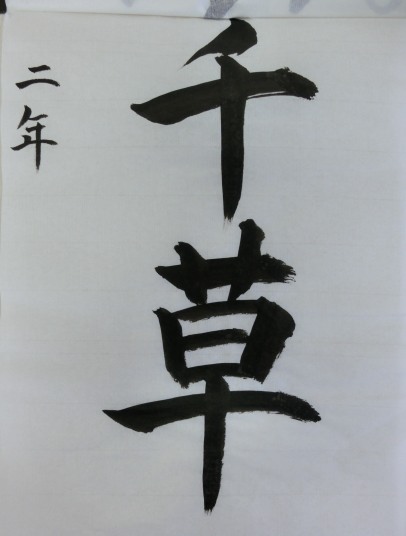 千草
二年